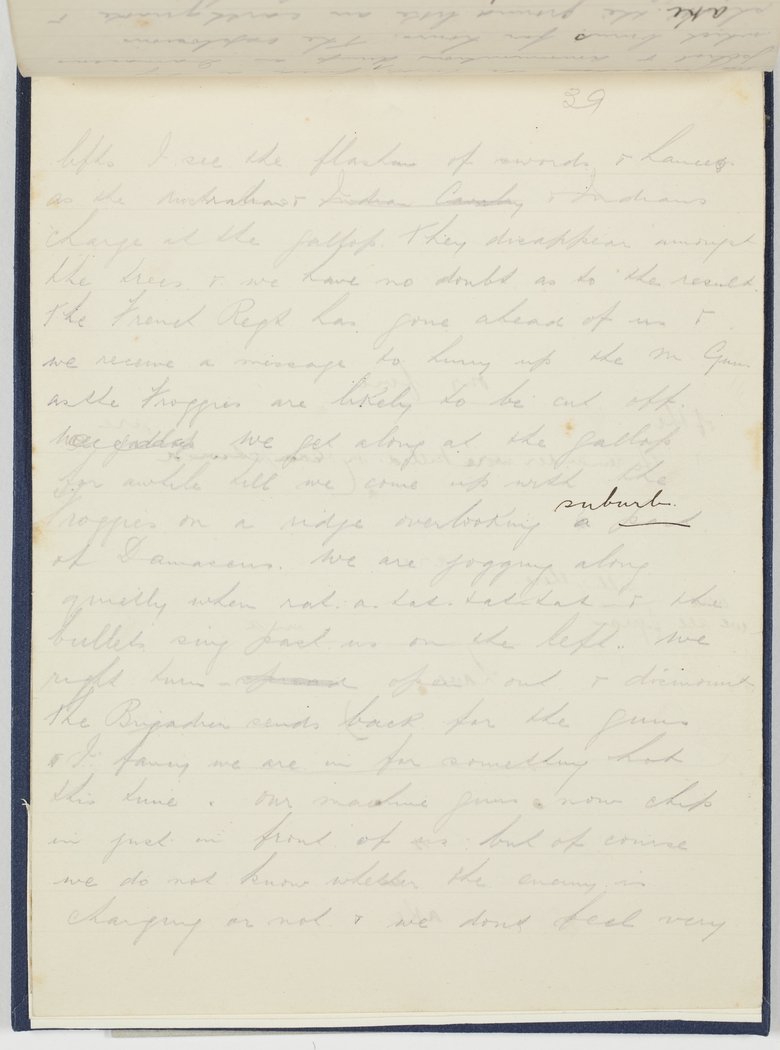 39
lifts I see the flashes of swords & lances
as the Australians & Indian Cavalry & Indians
charge at the gallop. They disappear amongst
the trees & we have no doubt as to the result.
The French Regt has gone ahead of us &
we receive a message to hurry up the M Guns
as the Froggies are likely to be cut off.
we get along at the gallop
for awhile till we come up with the
suburb.
Froggies on a ridge overlooking a part
of Damascus. We are jogging along
quietly when rat. a. tat. tat. tat. tat & the
bullets sing past us on the left. We
right turn spread open out & dismount
The Brigadier sends back for the guns
& I fancy we are in for something hot
this time. Our machine guns now chip
in just in front of us but of course
we do not know whether the enemy is
charging or not & we dont feel very